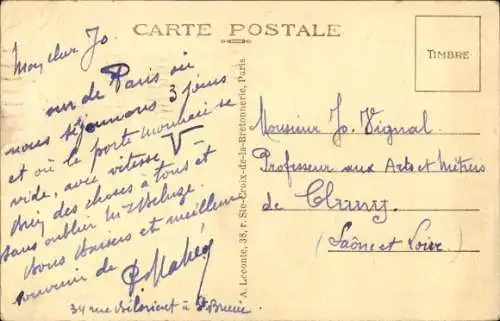 CARTE POSTALE
TIMBRE
Mon cher Jo.
de Paris où
nous séjournons 3 jours
et où le porte monnaie se
vide, avec vitesse V
des choses à tous et
sans oublier
Bons baisers et meilleur
souvenir de
34 rue à St Brieuc
A. Leconte, 38, r. Ste-Croix-de-la-Bretonnerie, Paris
Monsieur Jo. Vignal
Professeur aux Arts et Métiers
de Cluny
(Saône et Loire)